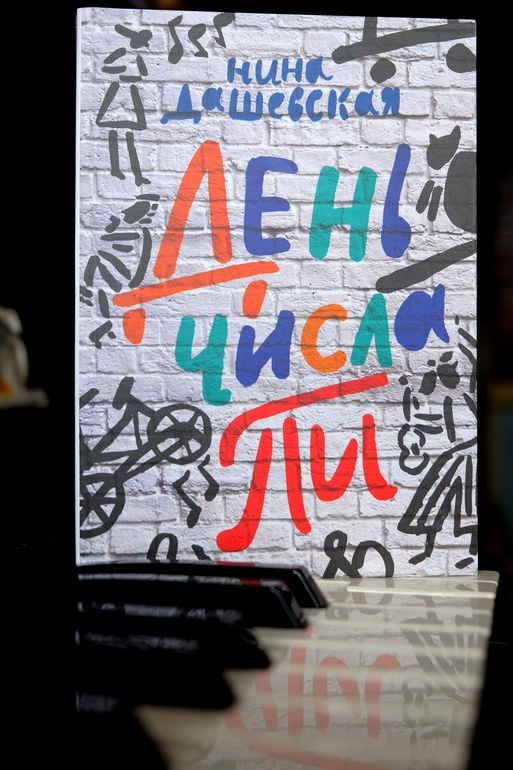 Нина
Дашевская
День
числа
Пи